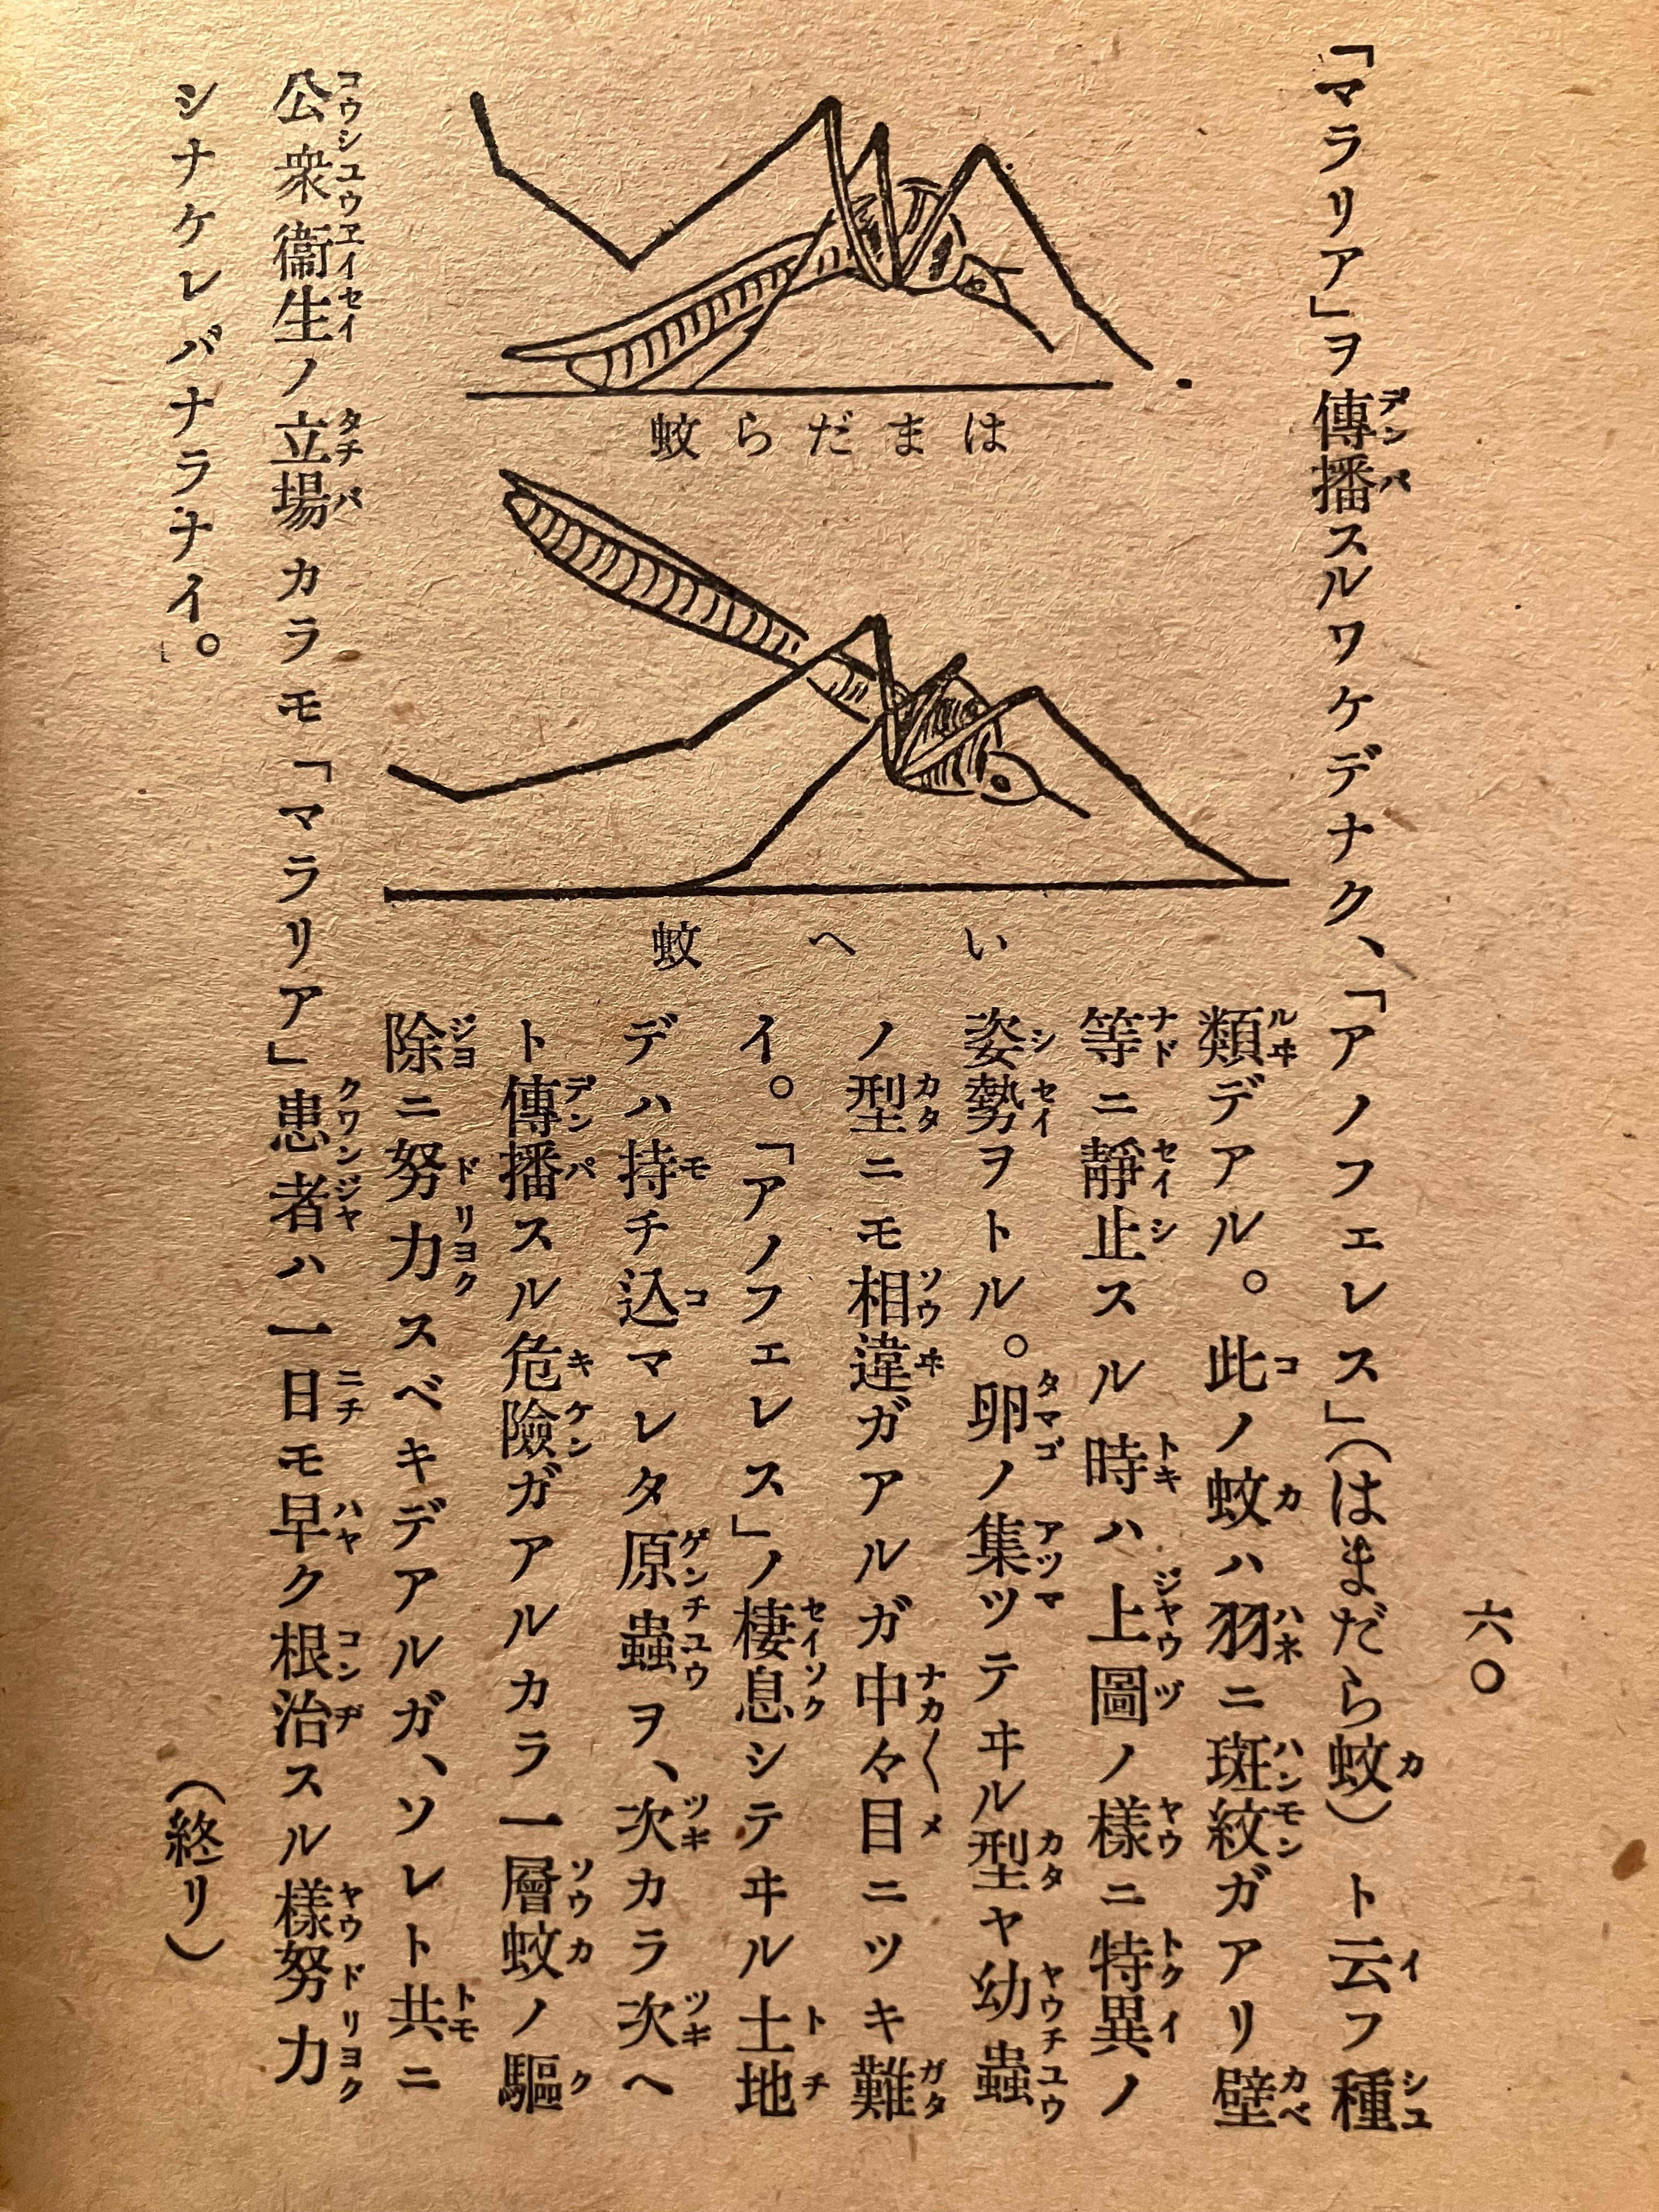 六〇
「マラリア」ヲ傳播スルワケデナク、「アノフェレス」(はまだら蚊)ト云フ種
類デアル。此ノ蚊ハ羽ニ斑紋ガアリ壁
等ニ靜止スル時ハ上圖ノ樣ニ特異ノ
姿勢ヲトル。卵ノ集ツテヰル型ヤ幼蟲
ノ型ニモ相違ガアルガ中々目ニツキ難
イ。「アノフェレス」ノ棲息シテヰル土地
デハ持チ込マレタ原蟲ヲ、次カラ次ヘ
ト傳播スル危險ガアルカラ一層蚊ノ驅
除ニ努力スベキデアルガ、ソレト共ニ
公衆衞生ノ立場カラモ「マラリア」患者ハ一日モ早ク根治スル樣努力
シナケレバナラナイ。
(終リ)
蚊らだまは
蚊へい